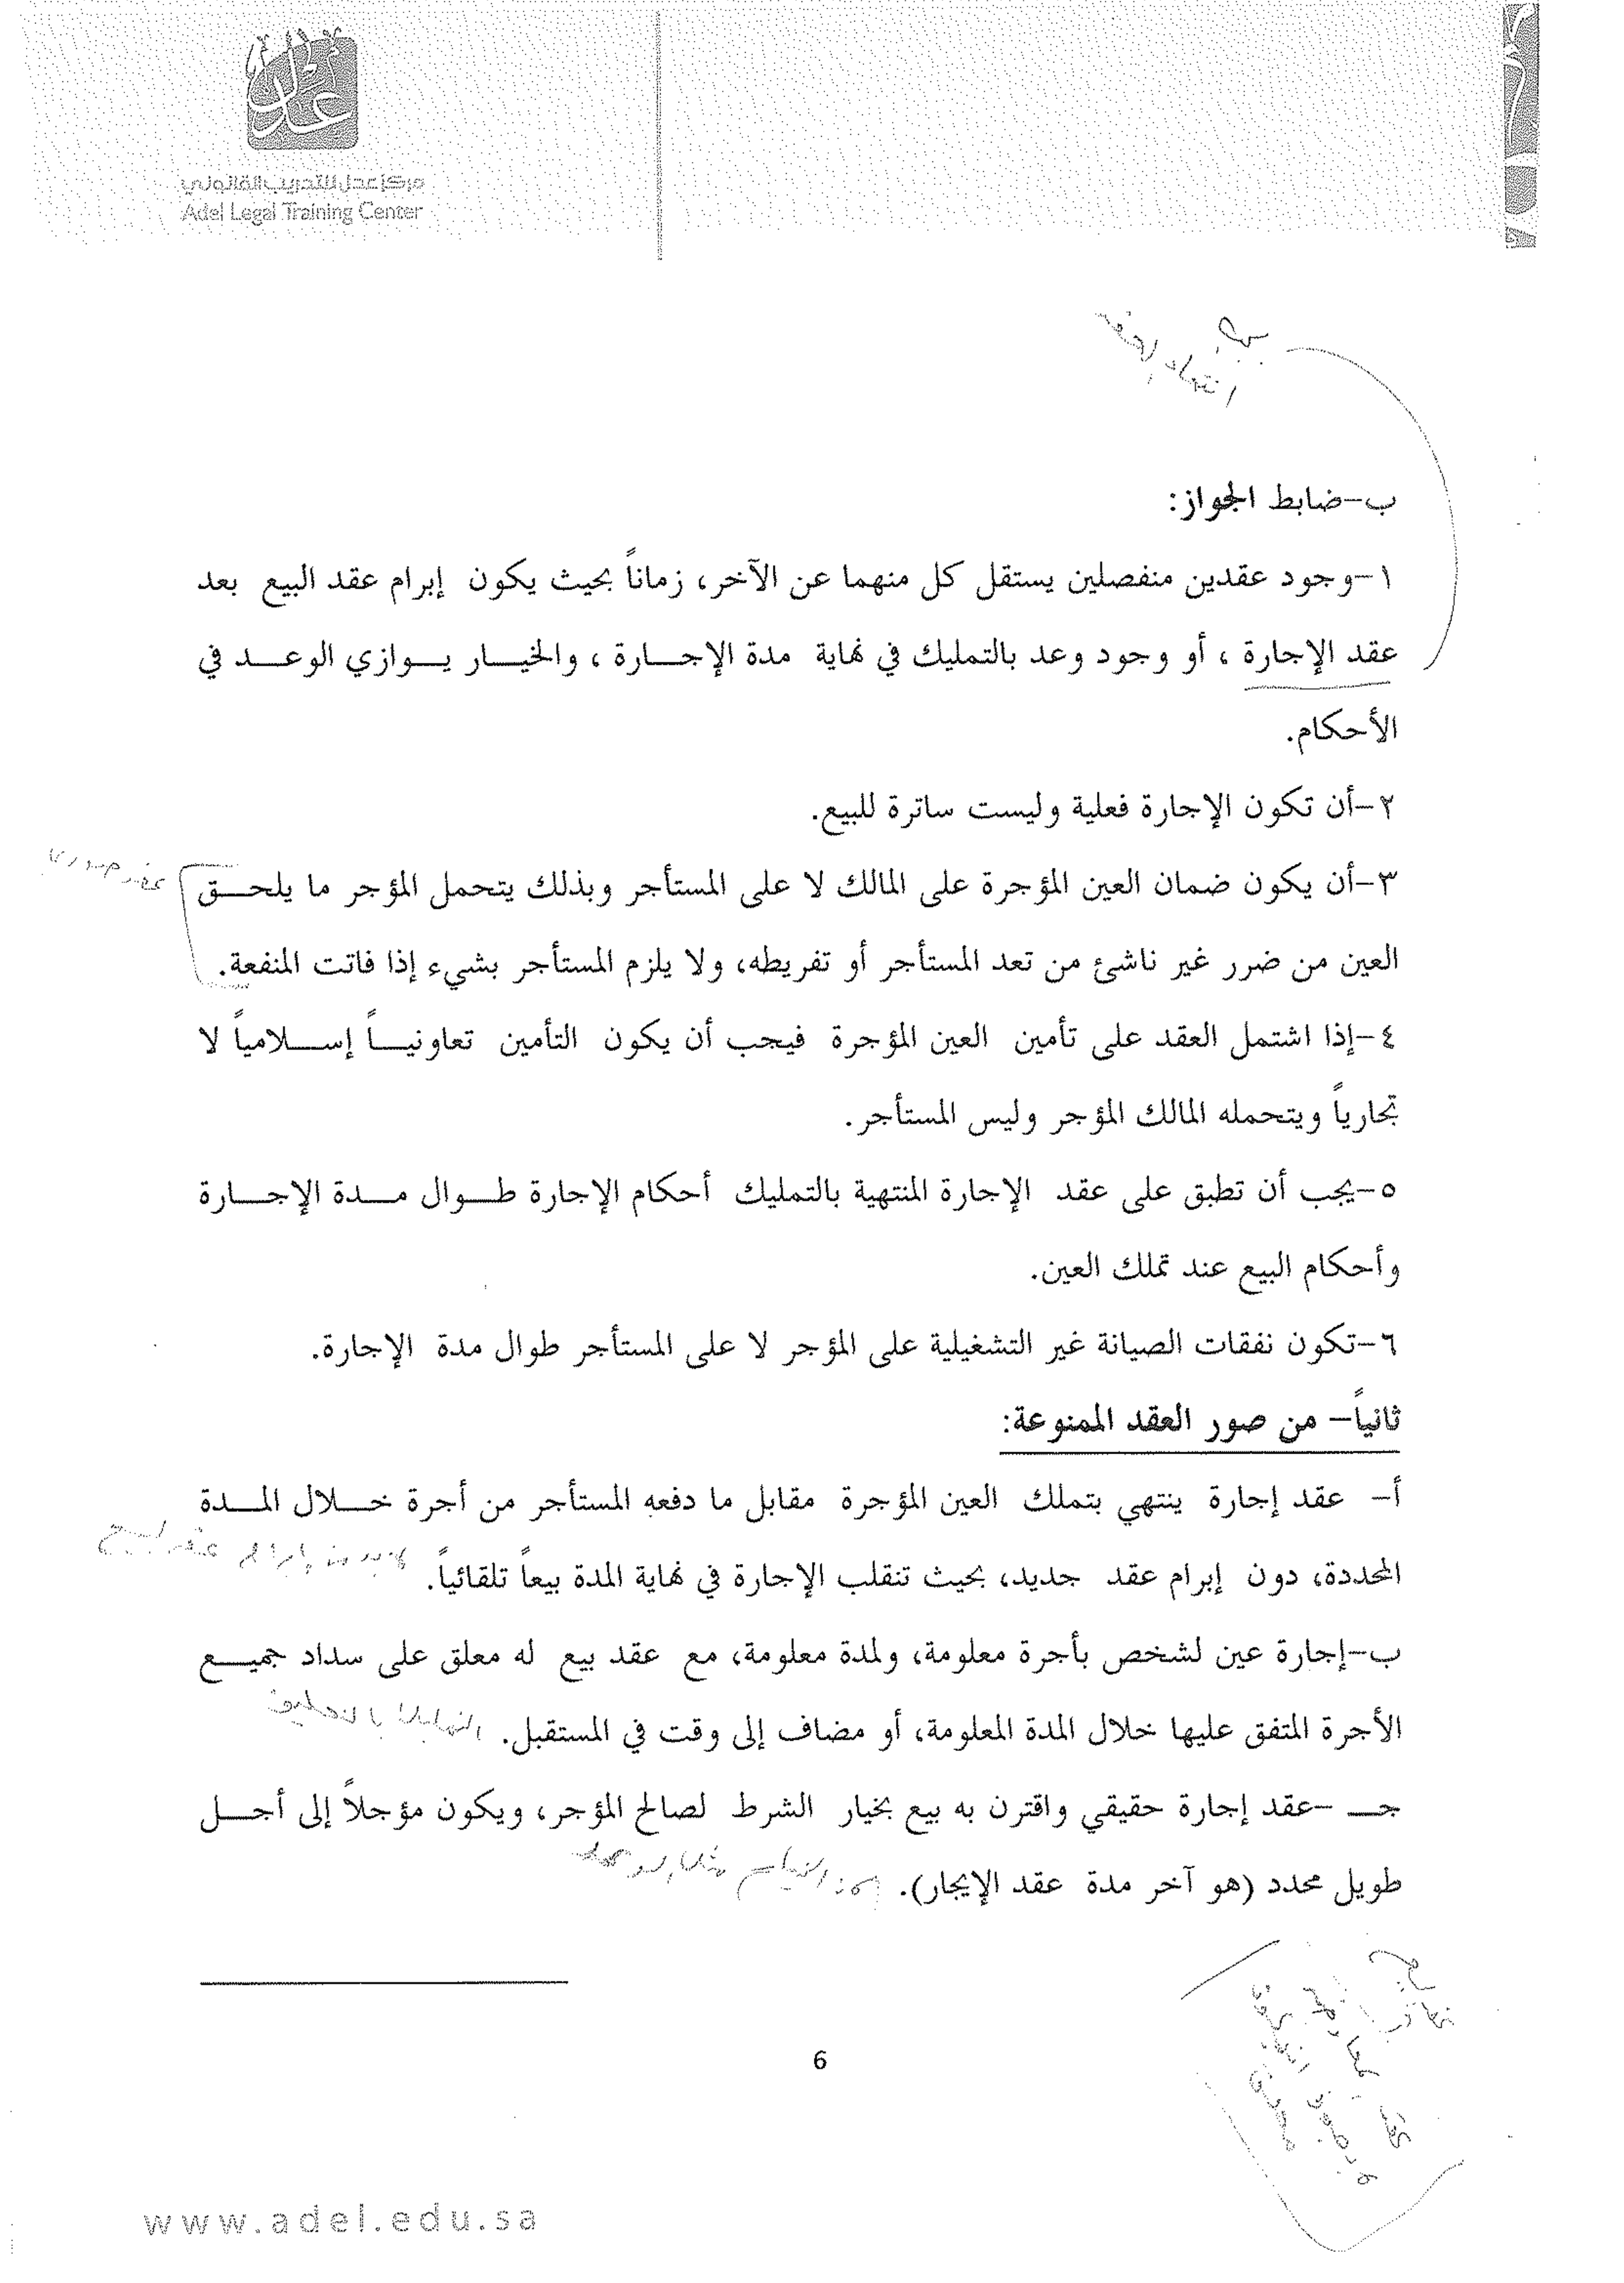 مركز عدل للتدريب القانوني
Adel Legal Training Center
ب-ضابط الجواز:
١-وجود عقدين منفصلين يستقل كل منهما عن الآخر، زماناً بحيث يكون إبرام عقد البيع بعد
عقد الإجارة ، أو وجود وعد بالتمليك في نهاية مدة الإجـــارة ، والخيـــار يـــوازي الوعـــد في
الأحكام.
٢-أن تكون الإجارة فعلية وليست ساترة للبيع.
٣-أن يكون ضمان العين المؤجرة على المالك لا على المستأجر وبذلك يتحمل المؤجر ما يلحـــق
العين من ضرر غير ناشئ من تعد المستأجر أو تفريطه، ولا يلزم المستأجر بشيء إذا فاتت المنفعة.
٤-إذا اشتمل العقد على تأمين العين المؤجرة فيجب أن يكون التأمين تعاونيـــاً إســـلامياً لا
تجارياً ويتحمله المالك المؤجر وليس المستأجر.
٥-يجب أن تطبق على عقد الإجارة المنتهية بالتمليك أحكام الإجارة طـــوال مـــدة الإجـــارة
وأحكام البيع عند تملك العين.
٦-تكون نفقات الصيانة غير التشغيلية على المؤجر لا على المستأجر طوال مدة الإجارة.
ثانياً- من صور العقد الممنوعة:
أ- عقد إجارة ينتهي بتملك العين المؤجرة مقابل ما دفعه المستأجر من أجرة خـــلال المـــدة
المحددة، دون إبرام عقد جديد، بحيث تنقلب الإجارة في نهاية المدة بيعاً تلقائياً.
ب-إجارة عين لشخص بأجرة معلومة، ولمدة معلومة، مع عقد بيع له معلق على سداد جميـــع
الأجرة المتفق عليها خلال المدة المعلومة، أو مضاف إلى وقت في المستقبل.
جـــ -عقد إجارة حقيقي واقترن به بيع بخيار الشرط لصالح المؤجر، ويكون مؤجلاً إلى أجـــل
طويل محدد (هو آخر مدة عقد الإيجار).
6
www.adel.edu.sa